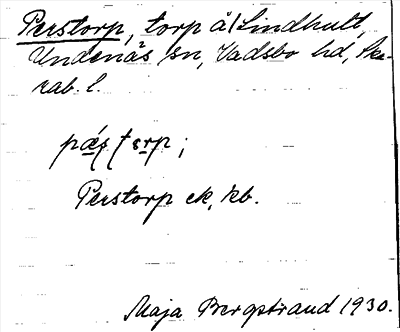 Perstorp, torp å/Lindhult,
Undenäs sn, Vadsbo hd, Ska-
rab. l.
Perstorp ek, kb.
Maja Bergstrand 1930.